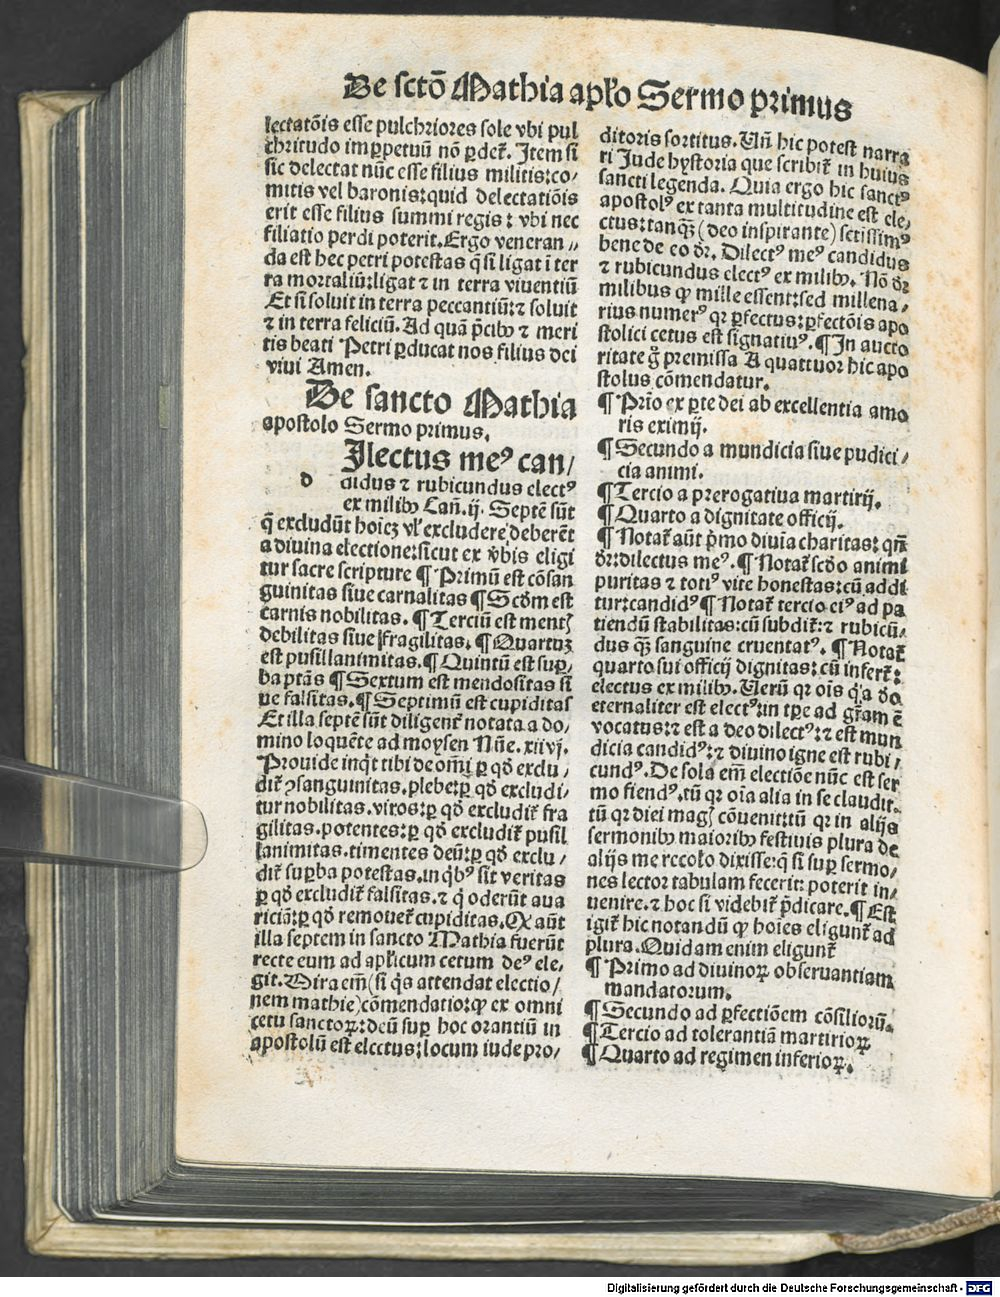 De sctō Mathia apło Sermo primus
lectatōis esse pulchriores sole vbi pul
chritudo imꝑpetuū nō ꝑdet̄. Item si
sic delectat nūc esse filius militis:co/
mitis vel baronis:quid delectatiōis
erit esse filius summi regis: vbi nec
filiatio perdi poterit. Ergo veneran//
da est hec petri potestas q̄ si ligat ī ter
ra mortaliū:ligat ⁊ in terra viuentiū
Et si soluit in terra peccantiū:⁊ soluit
⁊ in terra feliciū. Ad quā p̄cibꝰ ⁊ meri
tis beati Petri ꝑducat nos filius dei
viui Amen.
De sancto Mathia
apostolo Sermo primus.
d Ilectus meꝰ can/
didus ⁊ rubicundus electꝰ
ex milibꝰ Cañ.ij. Septē sūt
q̄ excludūt hoiēꝫ vł excludere deberēt
a diuina electione:sicut ex v̄bis eligi
tur sacre scripture ¶ Primū est cōsan
guinitas siue carnalitas ¶ Scd̄m est
carnis nobilitas. ¶ Terciū est mentꝭ
debilitas siue fragilitas. ¶ Quartuꝫ
est pusillanimitas. ¶ Quintū est suꝑ/
ba ptās̄ ¶ Sextum est mendositas si
ue falsitas. ¶ Septimū est cupiditas
Et illa septē sūt diligent̄ notata a do/
mino loquēte ad moysen Nūe. xiivj.
Prouide inq̄t tibi de om̄i ꝑ qd̄ exclu/
dit̄ ꝯsanguinitas. plebe:ꝑ qd̄ excludi/
tur nobilitas. viros:ꝑ qd̄ excludit̄ fra
gilitas. potentes:ꝑ qd̄ excludit̄ pusil
lanimitas. timentes deū:ꝑ qd̄ exclu/
dit̄ suꝑba potestas. in qb̄ꝰ sit veritas
ꝑ qd̄ excludit̄ falsitas. ⁊ q̄ oderūt aua
riciā:ꝑ qd̄ remouet̄ cupiditas. Qꝛ aūt
illa septem in sancto Mathia fuerūt
recte eum ad apłicum cetum deꝰ ele/
git. Mira em̄ (si q̄s attendat electio/
nem mathie) cōmendatio:ꝙ ex omni
cetu sanctoꝝ:deū suꝑ hoc orantiū in
apostolū est electus:locum iude pro/
ditoris sortitus. Uñ hic potest narra
ri Jude hystoria que scribit̄ in huius
sancti legenda. Quia ergo hic sanctꝰ
apostolꝰ ex tanta multitudine est ele/
ctus:tanqꝫ̄ (deo inspirante) sctissimꝰ
bene de eo dr̄. Dilectꝰ meꝰ candidus
⁊ rubicundus electꝰ ex milibꝰ. Nō dr̄
milibus ꝙ mille essent:sed millena/
rius numerꝰ qꝛ ꝑfectus:ꝑfectōis apo
stolici cetus est signatiuꝰ. ¶ In aucto
ritate g̊ premissa A quattuor hic apo
stolus cōmendatur.
¶ Prīo ex ꝑte dei ab excellentia amo
ris eximij.
¶ Secundo a mundicia siue pudici/
cia animi.
¶ Tercio a prerogatiua martirij.
¶ Quarto a dignitate officij.
¶ Notat̄ aūt p̄mo diuīa charitas: qñ
dr̄:dilectus meꝰ. ¶ Notat̄ scd̄o animi
puritas ⁊ totiꝰ vite honestas:cū addi
tur:candidꝰ ¶ Notat̄ tercio eiꝰ ad pa
tiendū stabilitas:cū subdit̄:⁊ rubicū/
dus qꝫ̄ sanguine cruentatꝰ. ¶ Notat̄
quarto sui officij dignitas: cū infert̄:
electus ex milibꝰ. Uerū qꝛ oīs q̄ a deo
eternaliter est electꝰ:in tꝑe ad gr̄am ē
vocatus:⁊ est a deo dilectꝰ:⁊ est mun
dicia candidꝰ:⁊ diuino igne est rubi/
cundꝰ. De sola em̄ electiōe nūc est ser
mo fiendꝰ. tū qꝛ oīa alia in se claudit.
tū qꝛ diei magꝭ cōuenit:tū qꝛ in alijs
sermonibꝰ maioribꝰ festiuis plura de
alijs me recoło dixisse:q̄ si suꝑ sermo/
nes lector tabulam fecerit: poterit in/
uenire. ⁊ hoc si videbit̄ p̄dicare. ¶ Est
igit̄ hic notandū ꝙ hoīes eligunt̄ ad
plura. Quidam enim eligunt̄
¶ Primo ad diuinoꝝ obseruantiam
mandatorum.
¶ Secundo ad ꝑfectiōem cōsiliorū.
¶ Tercio ad tolerantiā martirioꝝ
¶ Quarto ad regimen inferioꝝ.
Digitalisierung gefördert durch die Deutsche Forschungsgemeinschaft - DFG